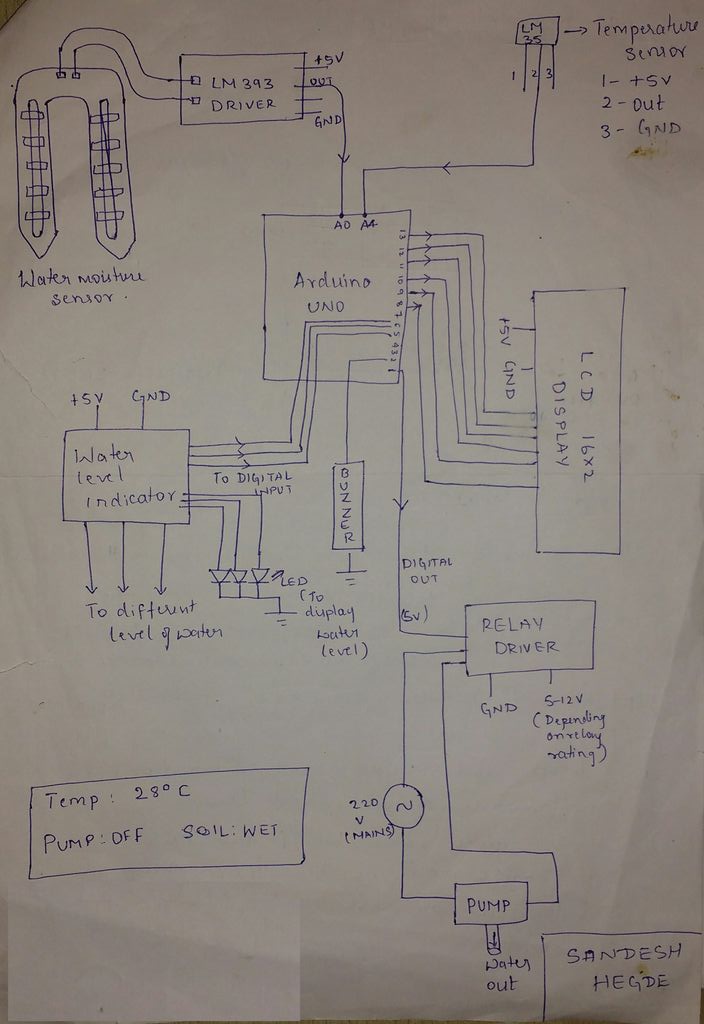 LM 35
Temperature
sensor
1- +5V
2- out
3- GND
1 2 3
+5V
OUT
LM393
DRIVER
GND
Water moisture
sensor.
A0 A4
Arduino
UNO
13
12
11
10
9
8
7
6
5
4
3
2
1
+5V
GND
LCD 16x2
DISPLAY
+5V GND
Water
level
indicator
To DIGITAL
INPUT
To different
level of water
LED
(To
display
water
level)
BUZZER
DIGITAL
OUT
(5V)
RELAY
DRIVER
GND
5-12V
(Depending
on relay
rating)
220
V
(MAINS)
~
PUMP
water
out
Temp: 28°C
PUMP:OFF SOIL:WET
SANDESH
HEGDE